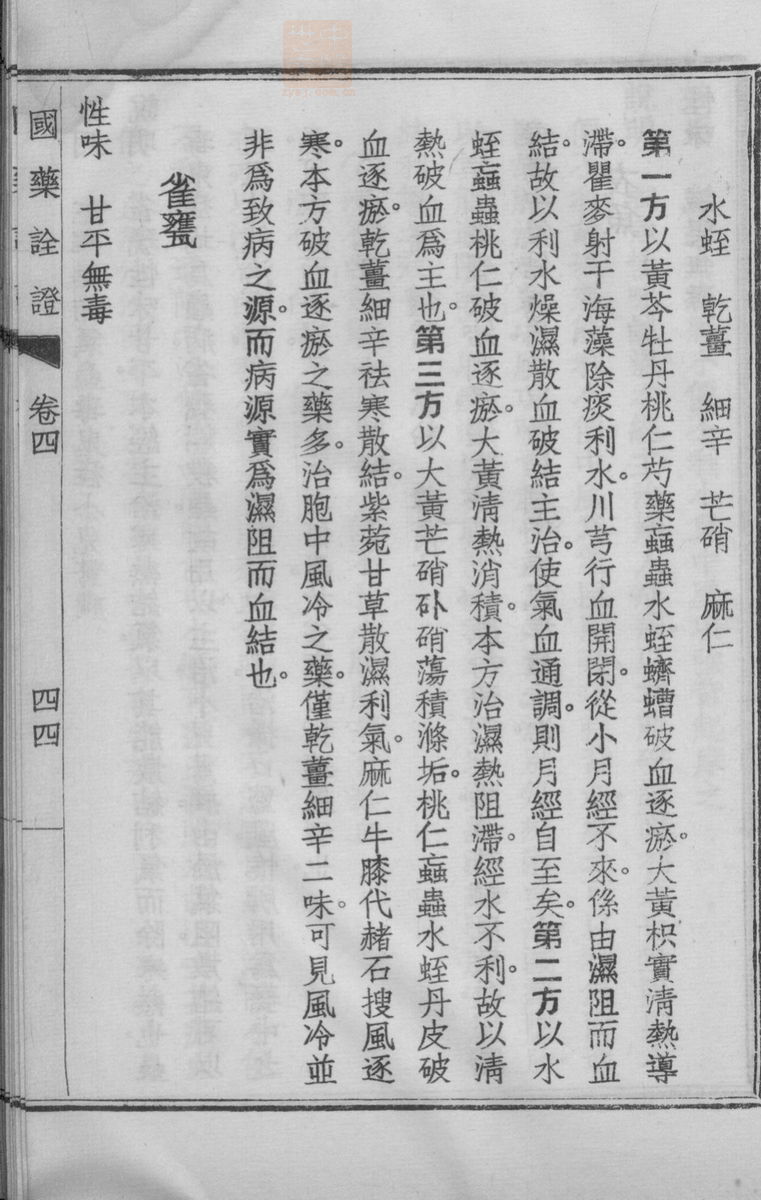 水蛭　乾薑　細辛　芒硝　麻仁
第一方以黃芩牡丹桃仁芍藥蝱蟲水蛭蠐螬破血逐瘀。大黃枳實清熱導
滯。瞿麥射干海藻除痰利水。川芎行血開閉。從小月經不來。係由濕阻而血
結。故以利水燥濕散血破結主治。使氣血通調。則月經自至矣。第二方以水
蛭蝱蟲桃仁破血逐瘀。大黃清熱消積。本方治濕熱阻滯。經水不利。故以清
熱破血爲主也。第三方以大黃芒硝矽硝蕩積滌垢。桃仁蝱蟲水蛭丹皮破
血逐瘀。乾薑細辛祛寒散結。紫菀甘草散濕利氣。麻仁牛膝代赭石搜風逐
寒。本方破血逐瘀之藥多。治胞中風冷之藥。僅乾薑細辛二味。可見風冷並
非爲致病之源。而病源實爲濕阻而血結也。
雀甕
性味　甘平無毒
國藥詮證　卷四　四四